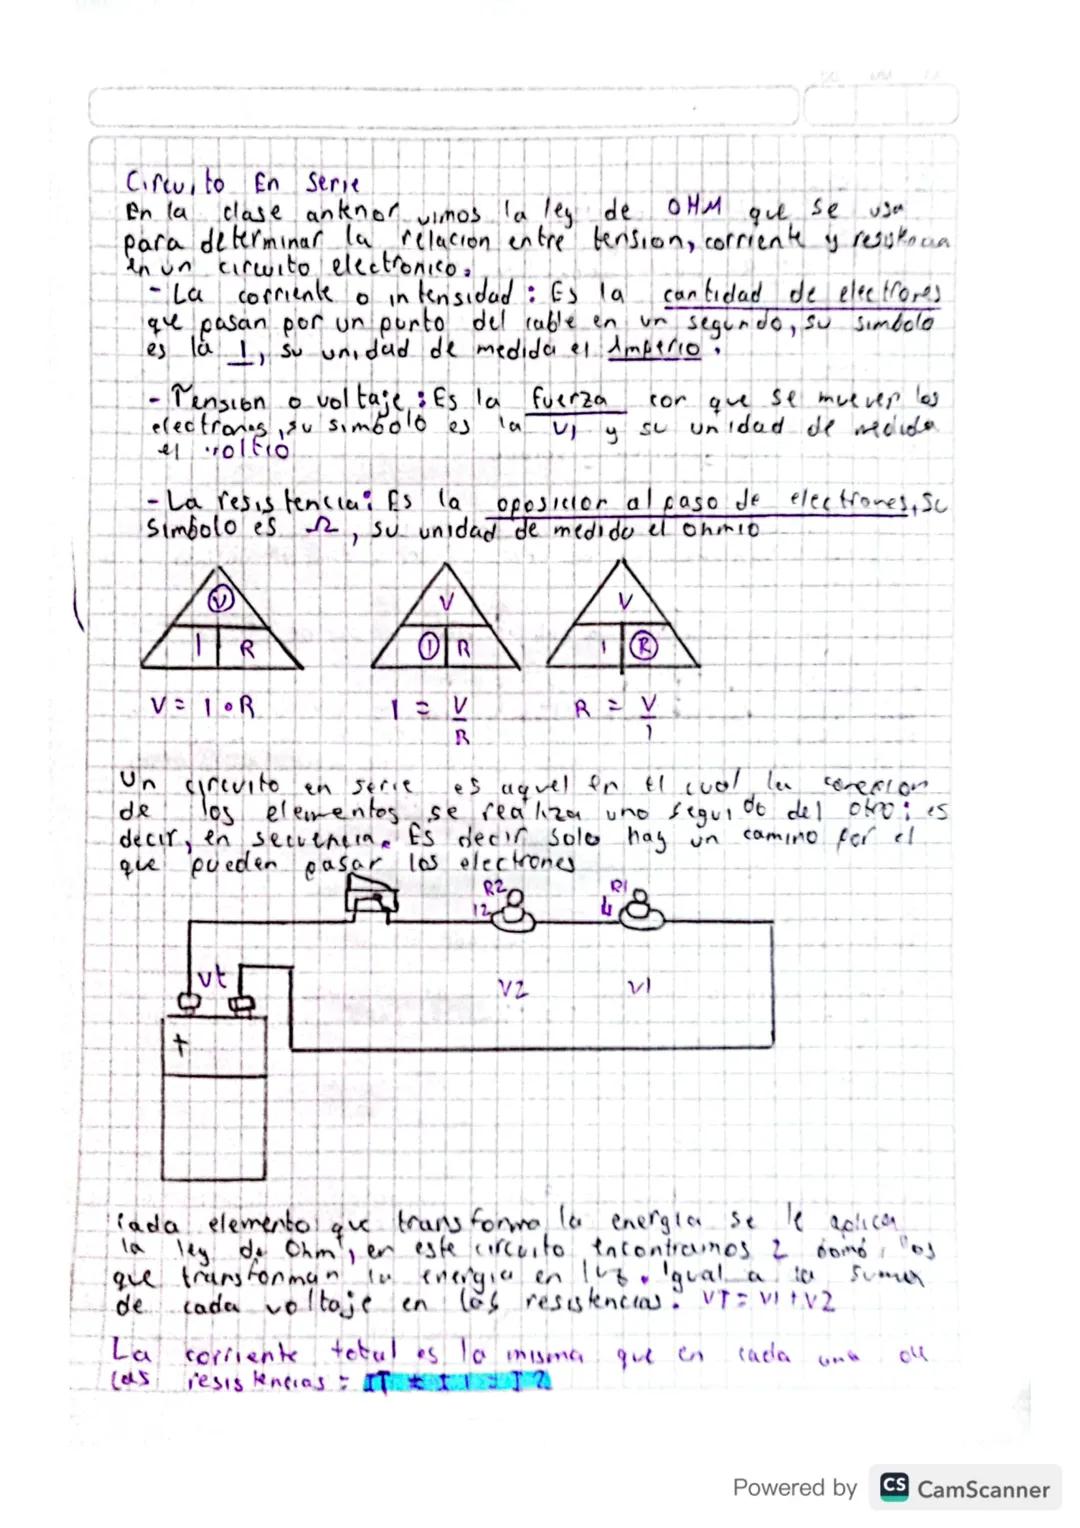 Circuito En Serie
En la clase anterior vimos la ley de OHM que se usa
para determinar la relacion entre tension, corriente y resistencia
en un circuito electronico.
- La corriente o intensidad : Es la cantidad de electrones
que pasan por un punto del cable en un segundo, su simbolo
es la I, su unidad de medida el Amperio.
- Tension o voltaje : Es la fuerza con que se mueven los
electrones, su simbolo es la V, y su unidad de medida
el voltio
- La resistencia : Es la oposicion al paso de electrones, su
Simbolo es Ω, su unidad de medida el ohmio
V V V
I R I R I R
V = I • R I = V/R R = V/I
Un circuito en serie es aquel en el cual la conexion
de los elementos se realiza uno seguido del otro; es
decir, en secuencia. Es decir solo hay un camino por el
que pueden pasar los electrones
R2 R1
12 4
Vt V2 V1
+
Cada elemento que transforma la energia se le aplica
la ley de Ohm, en este circuito encontramos 2 bombillos
que transforman la energia en luz. Igual a la suma
de cada voltaje en las resistencias. VT = V1 + V2
La corriente total es la misma que en cada una de
las resistencias : IT = I1 = I2
Powered by CS CamScanner